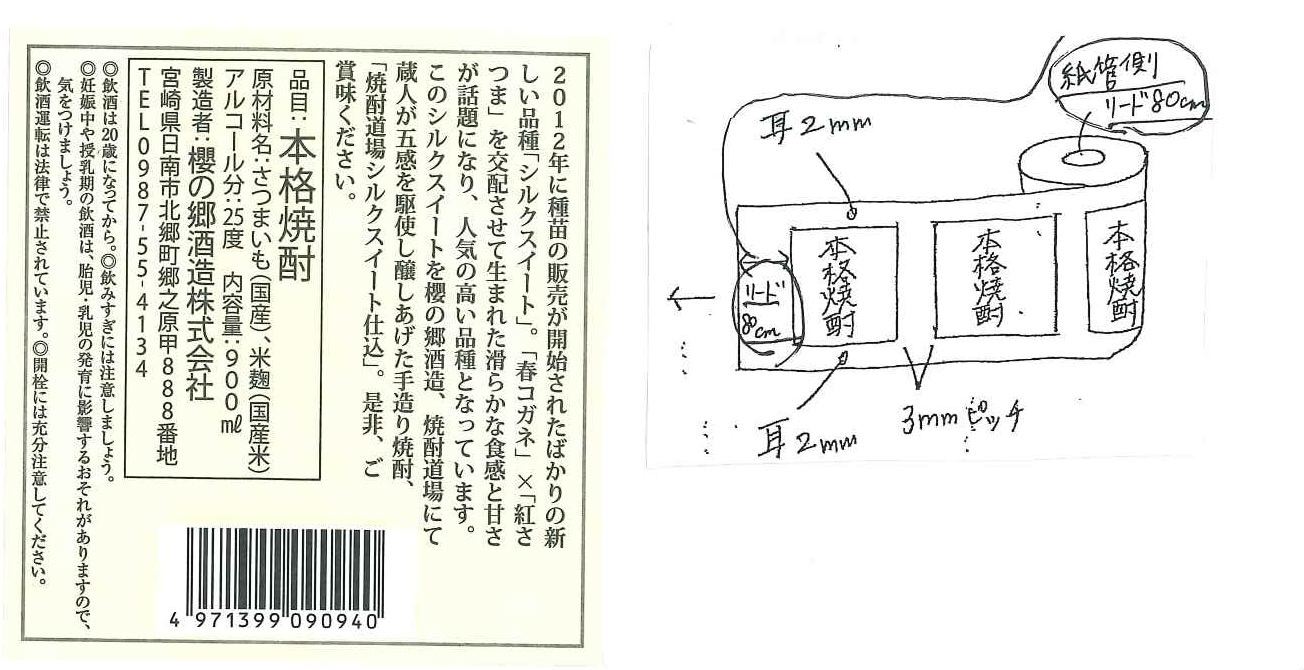 2012年に種苗の販売が開始されたばかりの新
しい品種「シルクスイート」。「春コガネ」×「紅さ
つま」を交配させて生まれた滑らかな食感と甘さ
が話題になり、人気の高い品種となっています。
このシルクスイートを櫻の郷酒造、焼酎道場にて
蔵人が五感を駆使し醸しあげた手造り焼酎、
「焼酎道場シルクスイート仕込」。是非、ご
賞味ください。
品目:本格焼酎
原材料名:さつまいも(国産)、米麹(国産米)
アルコール分:25度 内容量:900㎖
製造者:櫻の郷酒造株式会社
宮崎県日南市北郷町郷之原甲888番地
TEL0987-55-4134
◎飲酒は20歳になってから。◎飲みすぎには注意しましょう。
◎妊娠中や授乳期の飲酒は、胎児・乳児の発育に影響するおそれがありますので、
気をつけましょう。
◎飲酒運転は法律で禁止されています。◎開栓には充分注意してください。
4 971399 090940
紙管側
リード80cm
耳2mm
本格焼酎
本格焼酎
本格焼酎
リード
80cm
耳2mm
3mmピッチ